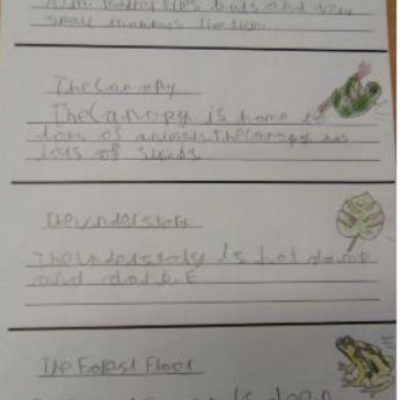 bats and very
small
The Canopy
The Canopy is home to
lots of animals The Canopy is
lots of
The understory
The understory is hot damp
and darkE
The Forest Floor
is